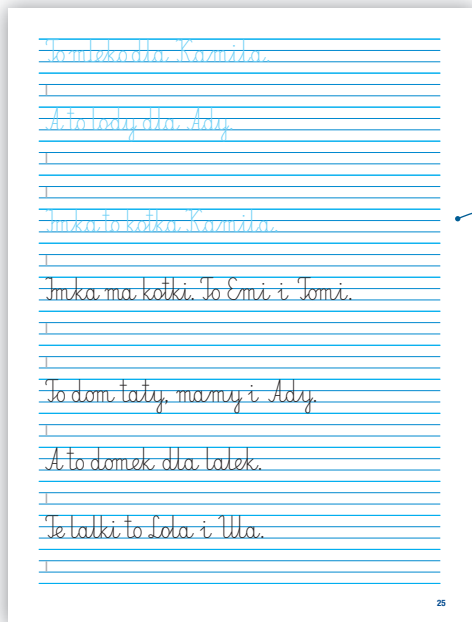 To mleko dla Kamila.
A to lody dla Ady.
Imka to kotka Kamila.
Imka ma kotki. To Emi i Tomi.
To dom taty, mamy i Ady.
A to domek dla lalek.
Te lalki to Lola i Ula.
25